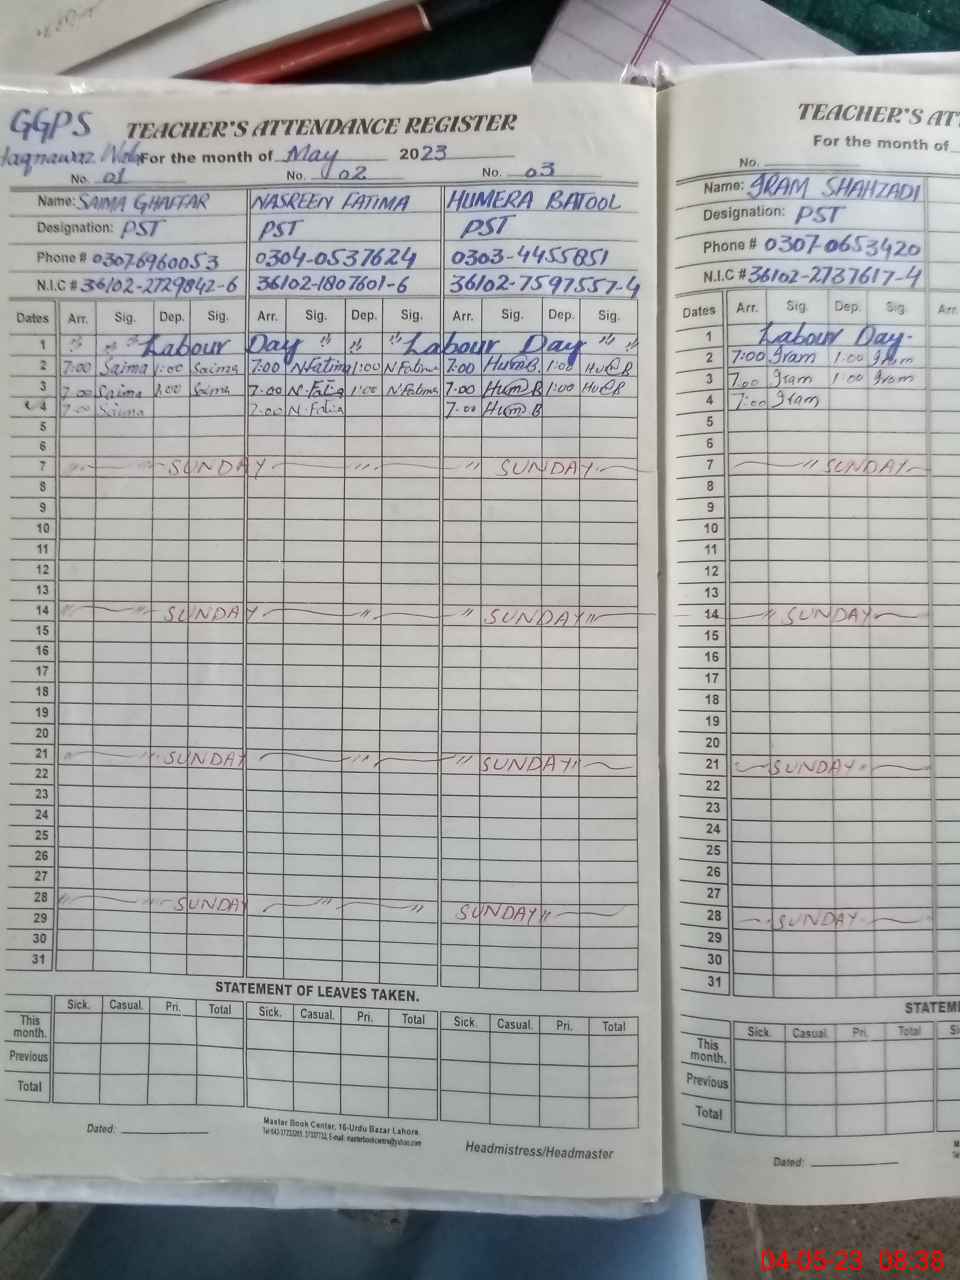 GGPS TEACHER'S ATTENDANCE REGISTER
Haqnawaz For the month of May 2023
No. 01 No. 02 No. 03
Name: SAIMA GHAFFAR NASREEN FATIMA HUMERA BATOOL
Designation: PST PST PST
Phone # 0307-6960053 0304-0537624 0303-4455851
N.I.C # 36102-2729842-6 36102-1807601-6 36102-7597557-4
Dates Arr. Sig. Dep. Sig. Arr. Sig. Dep. Sig. Arr. Sig. Dep. Sig.
1 " " " Labour Day " " Labour Day " "
2 7:00 Saima 1:00 Saima 7:00 N.Fatima 1:00 N Fatima 7:00 Hum.B. 1:00 Hum B
3 7:00 Saima 1:00 Saima 7:00 N.Fatia 1:00 N Fatima 7:00 Hum B 1:00 Hum B
4 7:00 Saima 7:00 N.Fatia 7:00 Hum B
5
6
7 SUNDAY SUNDAY
8
9
10
11
12
13
14 SUNDAY SUNDAY
15
16
17
18
19
20
21 SUNDAY SUNDAY
22
23
24
25
26
27
28 SUNDAY SUNDAY
29
30
31
STATEMENT OF LEAVES TAKEN.
Sick. Casual. Pri. Total Sick. Casual. Pri. Total Sick. Casual. Pri. Total
This month.
Previous
Total
Dated:
Master Book Center, 16-Urdu Bazar Lahore.
Headmistress/Headmaster
TEACHER'S ATT
For the month of
No.
Name: IRAM SHAHZADI
Designation: PST
Phone # 0307-0653420
N.I.C # 36102-2737617-4
Dates Arr. Sig. Dep. Sig. Arr.
1 Labour Day.
2 7:00 Iram 1:00 Iram
3 7:00 Iram 1:00 Iram
4 7:00 Iram
5
6
7 SUNDAY
8
9
10
11
12
13
14 SUNDAY
15
16
17
18
19
20
21 SUNDAY
22
23
24
25
26
27
28 SUNDAY
29
30
31
STATEM
Sick. Casual. Pri. Total
This month.
Previous
Total
Dated:
04-05-23 08:38